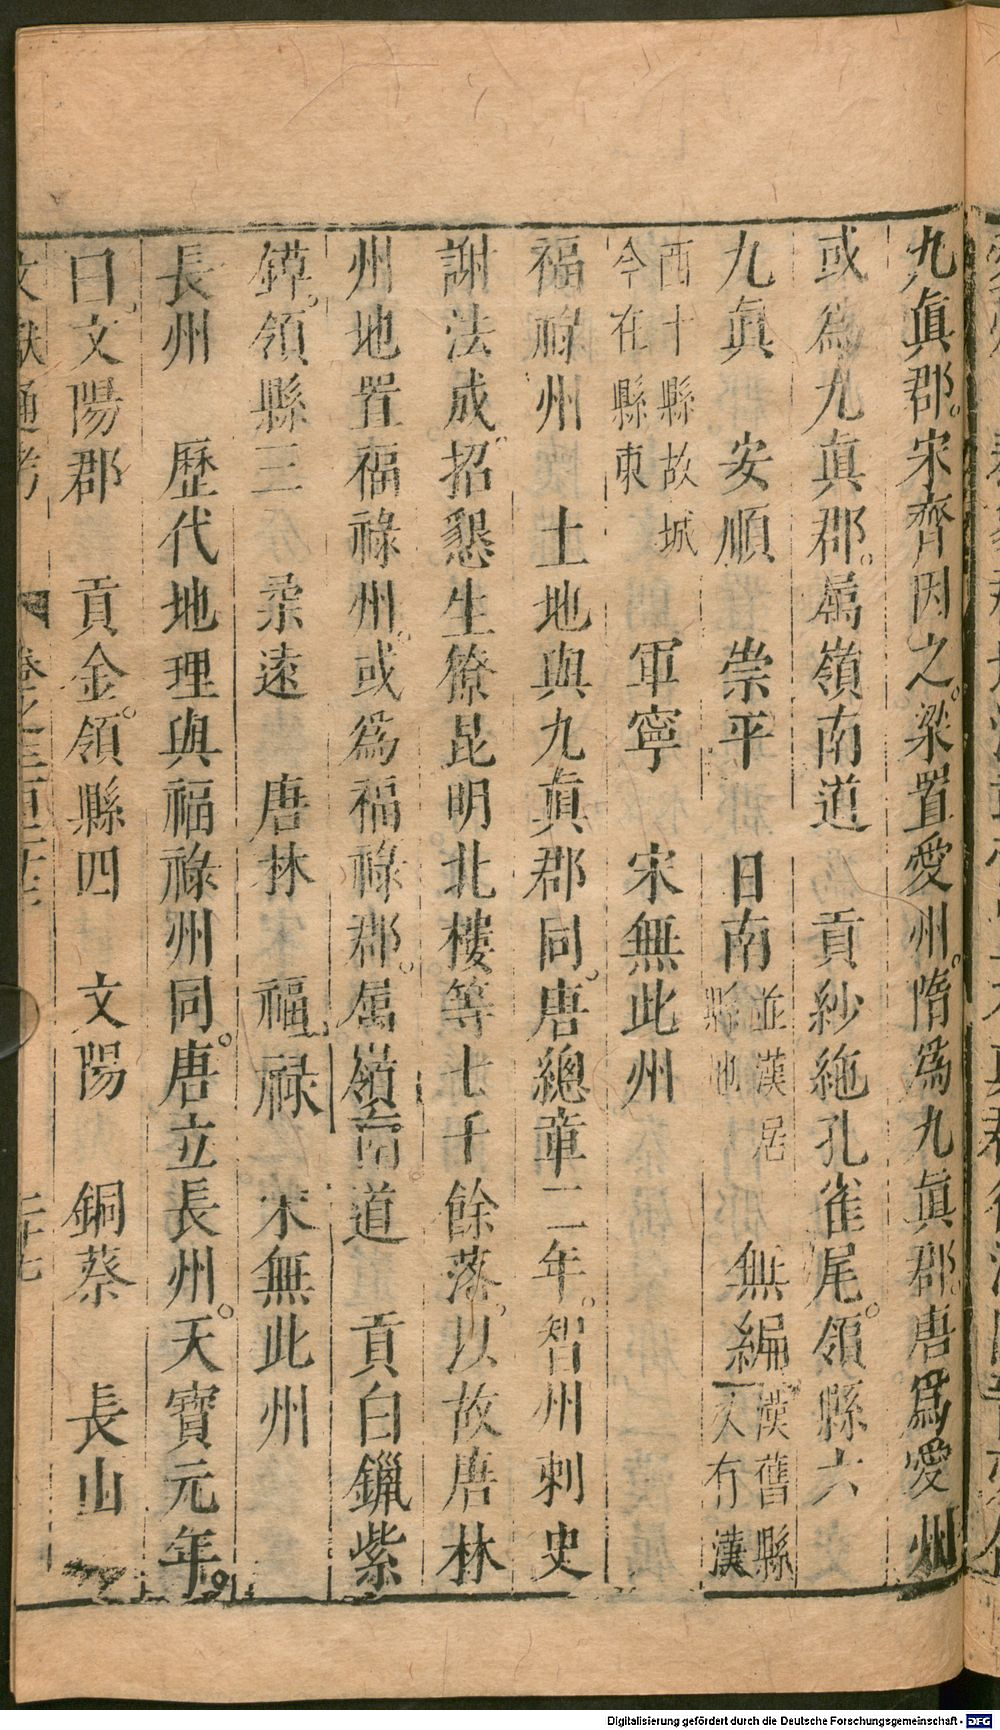 九眞郡宋齊因之梁置愛州隋爲九眞郡唐爲愛州
或爲九眞郡屬嶺南道　貢紗絁孔雀尾領縣六
九眞　安順　崇平　日南並漢居縣地　無編漢舊縣又有漢
西于縣故城今在縣東　軍寧　宋無此州
福祿州　土地與九眞郡同唐總章二年智州刺史
謝法成招慰生獠昆明北樓等七千餘落以故唐林
州地置福祿州或爲福祿郡屬嶺南道　貢白鑞紫
鉡領縣三　柔遠　唐林　福祿　宋無此州
長州　歷代地理與福祿州同唐立長州天寶元年
曰文陽郡　貢金領縣四　文陽　銅蔡　長山
文獻通考　卷之三百二十三　二十七
Digitalisierung gefördert durch die Deutsche Forschungsgemeinschaft - DFG